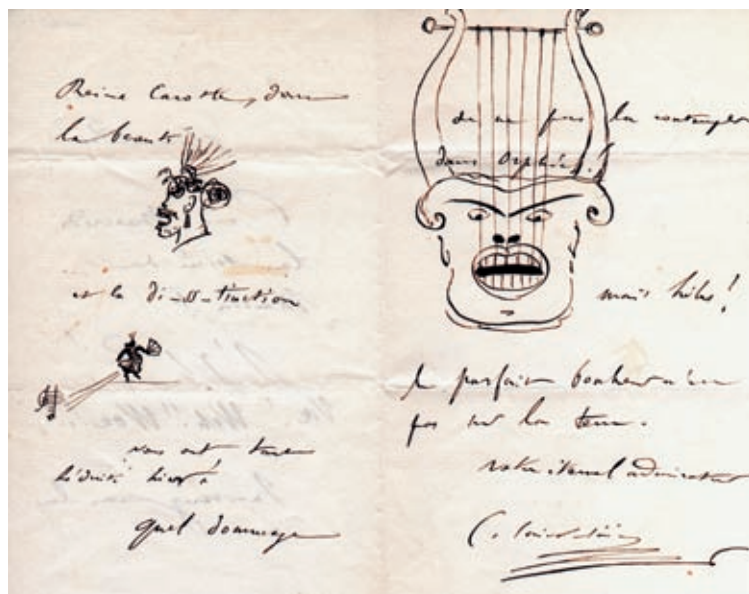 Reine Carotte, dont
la beauté
et la di-ss-tinction
vous ont tant
séduits hier!
quel dommage
de ne pas la contempler
dans Orphée!
mais hélas!
le parfait bonheur n'est
pas sur la terre.
votre éternel admirateur
C. Saint-Saëns